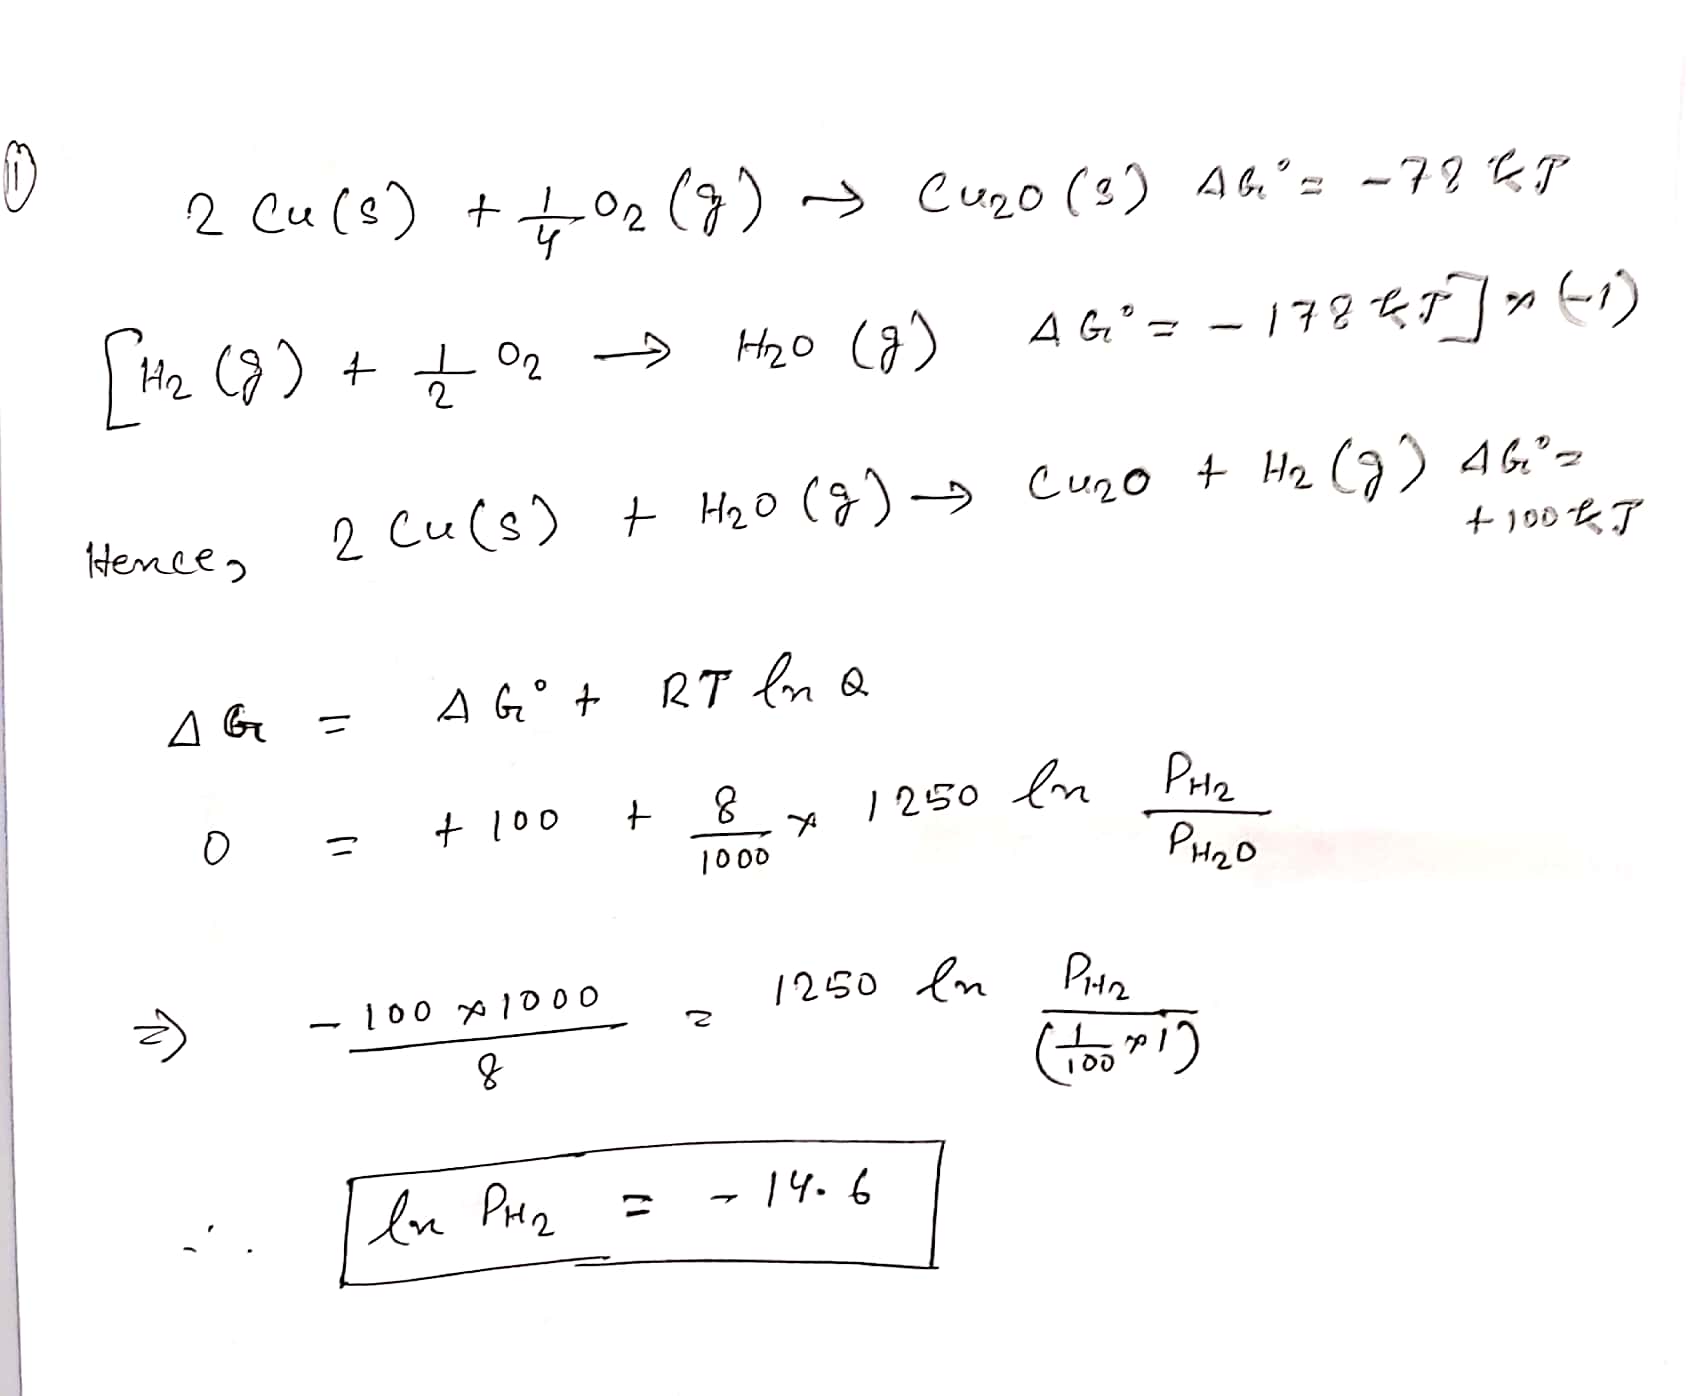 ① 2 Cu(s) + 1/4 O2 (g) → Cu2O (s) ΔG° = -78 kJ
[H2 (g) + 1/2 O2 → H2O (g) ΔG° = -178 kJ] × (-1)
Hence, 2 Cu(s) + H2O (g) → Cu2O + H2 (g) ΔG° = +100 kJ
ΔG = ΔG° + RT ln Q
0 = +100 + 8/1000 × 1250 ln PH2/PH2O
⇒ -100 × 1000/8 = 1250 ln PH2/(1/100 × 1)
∴ ln PH2 = -14.6